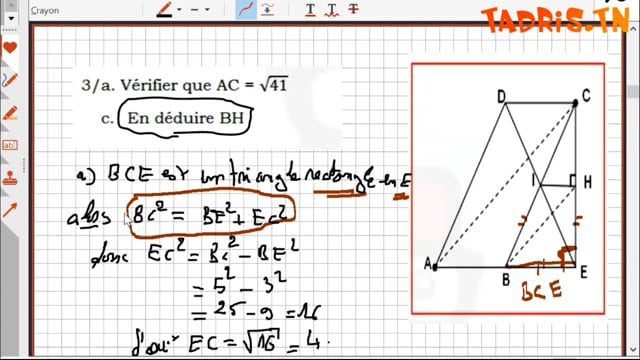 Crayon
TADRIS.TN
3/a. Vérifier que AC = √41
c. En déduire BH
a) BCE est un triangle rectangle en E
alors BC² = BE² + EC²
donc EC² = BC² - BE²
= 5² - 3²
= 25 - 9 = 16
d'où EC = √16 = 4.
D C
I H
A B E
BCE